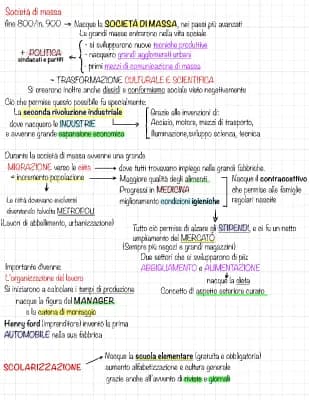 Società di massa
fine 800/in. 900 → Nacque la SOCIETÀ DI MASSA, nei paesi più avanzati
Le grandi masse entrarono nella vita sociale
+ POLITICA
sindacati e partiti
- si svilupparono nuove tecniche produttive
- nacquero grandi agglomerati urbani
- primi mezzi di comunicazione di massa
~ TRASFORMAZIONE CULTURALE E SCIENTIFICA
Si crearono inoltre anche disagi e conformismo sociale visto negativamente
Ciò che permise questo possibile fu specialmente:
La seconda rivoluzione industriale
dove nacquero le INDUSTRIE
e avvenne grande espansione economica
Grazie alle invenzioni di:
Acciaio, motore, mezzi di trasporto,
illuminazione, sviluppo scienza, tecnica
Durante la società di massa avvenne una grande
MIGRAZIONE verso le città → dove tutti trovavano impiego nelle grandi fabbriche.
+ incremento popolazione
Le città dovevano evolversi
diventando talvolta METROPOLI
(Lavori di abbellimento, urbanizzazione)
Maggiore qualità degli alimenti.
Progressi in MEDICINA
miglioramento condizioni igieniche
Nacque il contraccettivo
che permise alle famiglie
regolari nascite
Tutto ciò permise di alzare gli STIPENDI, e ci fu un netto
ampliamento del MERCATO
(Sempre più negozi e grandi magazzini)
Due settori che si svilupparono di più:
ABBIGLIAMENTO e ALIMENTAZIONE
nacque la dieta
Concetto di aspetto esteriore curato
Importante divenne:
L'organizzazione del lavoro
Si iniziarono a calcolare i tempi di produzione
nacque la figura del MANAGER
e la catena di montaggio
Henry ford (imprenditore) inventò la prima
AUTOMOBILE nella sua fabbrica
SCOLARIZZAZIONE
Nacque la scuola elementare (gratuita e obbligatoria)
aumento alfabetizzazione e cultura generale
grazie anche all'avvento di riviste e giornali